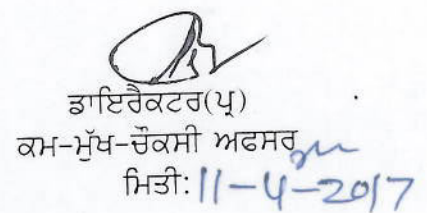 ਡਾਇਰੈਕਟਰ(ਪ੍ਰ)
ਕਮ-ਮੁੱਖ-ਚੌਕਸੀ ਅਫਸਰ
ਮਿਤੀ: 11-4-2017